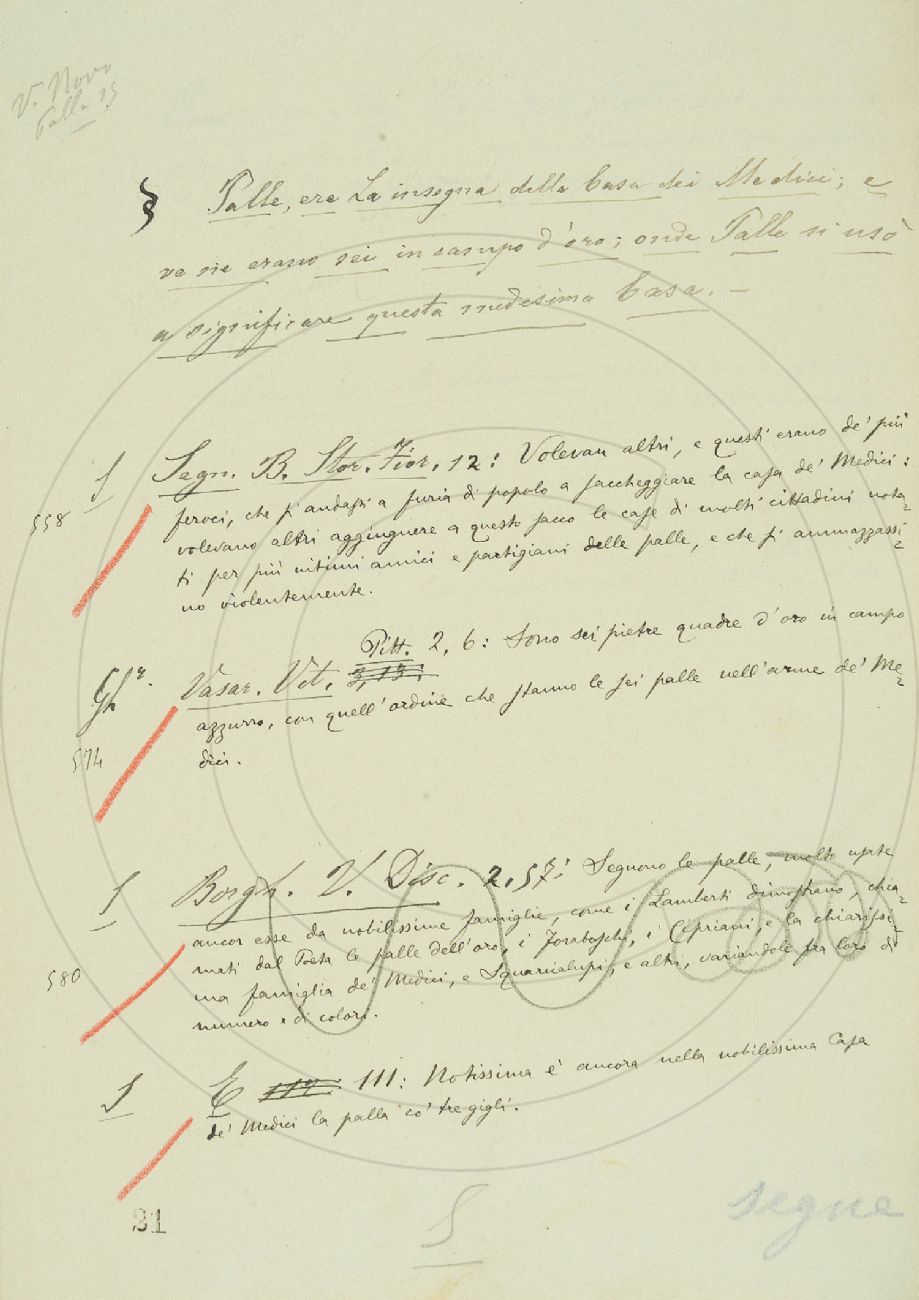 V. Novo
Palla 25
§ Palle, era La insegna della Casa dei Medici; e
ve ne erano sei in campo d'oro; onde Palle si usò
a significare questa medesima Casa. –
S Segn. B. Stor. Fior. 12: Volevan altri, e questi erano de' più
558 feroci, che si andassi a furia di popolo a saccheggiare la casa de' Medici:
volevano altri aggiugnere a questo sacco le case di molti cittadini nota=
ti per più intimi amici e partigiani delle palle, e che si ammazzassi=
no violentemente.
Gh.
Vasar. Vit. Pitt. 2, 6: Sono sei pietre quadre d'oro in campo
574 azzurro, con quell'ordine che stanno le sei palle nell'arme de' Me=
dici.
S Borgh. V. Disc. 2, 57: Seguono le palle, molto usate
ancor esse da nobilissime famiglie, come i Lamberti dimostrano, chia=
580 mati dal Poeta le palle dell'oro, i Foraboschi, i Cipriani, e la chiarissi=
ma famiglia de' Medici, e Squarcialupi, e altri, variandole fra loro di
numero e di colori.
S E 111: Notissima è ancora nella nobilissima Casa
de' Medici la palla co' tre gigli.
21
S
segue